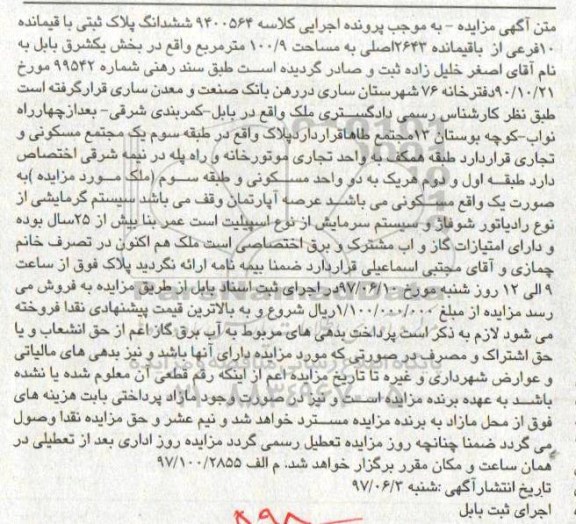 متن آگهی مزایده - به موجب پرونده اجرایی کلاسه ۹۴۰۰۵۶۴ ششدانگ پلاک ثبتی با قیمانده
۱۰فرعی از باقیمانده ۲۶۴۳اصلی به مساحت ۱۰۰/۹ مترمربع واقع در بخش یکشرق بابل به
نام آقای اصغر خلیل زاده ثبت و صادر گردیده است طبق سند رهنی شماره ۹۹۵۴۲ مورخ
۹۰/۱۰/۲۱دفترخانه ۷۶ شهرستان ساری دررهن بانک صنعت و معدن ساری قرارگرفته است
طبق نظر کارشناس رسمی دادگستری ملک واقع در بابل-کمربندی شرقی- بعدازچهارراه
نواب-کوچه بوستان ۱۳مجتمع طاهاقرارداردپلاک واقع در طبقه سوم یک مجتمع مسکونی و
تجاری قراردارد طبقه همکف به واحد تجاری موتورخانه و راه پله در نیمه شرقی اختصاص
دارد طبقه اول و دوم هریک به دو واحد مسکونی و طبقه سوم (ملک مورد مزایده )به
صورت یک واقع مسکونی می باشد عرصه آپارتمان وقف می باشد سیستم گرمایشی از
نوع رادیاتور شوفاژ و سیستم سرمایش از نوع اسپیلیت است عمر بنا بیش از ۲۵سال بوده
و دارای امتیازات گاز و اب مشترک و برق اختصاصی است ملک هم اکنون در تصرف خانم
چمازی و آقای مجتبی اسماعیلی قراردارد ضمنا بیمه نامه ارائه نگردید پلاک فوق از ساعت
۹ الی ۱۲ روز شنبه مورخ ۹۷/۰۶/۱۰در اجرای ثبت اسناد بابل از طریق مزایده به فروش می
رسد مزایده از مبلغ ۱/۱۰۰/۰۰۰/۰۰۰ریال شروع و به بالاترین قیمت پیشنهادی نقدا فروخته
می شود لازم به ذکر است پرداخت بدهی های مربوط به آب برق گاز اعم از حق انشعاب و یا
حق اشتراک و مصرف در صورتی که مورد مزایده دارای آنها باشد و نیز بدهی های مالیاتی
و عوارض شهرداری و غیره تا تاریخ مزایده اعم از اینکه رقم قطعی آن معلوم شده یا نشده
باشد به عهده برنده مزایده است و نیز در صورت وجود مازاد پرداختی بابت هزینه های
فوق از محل مازاد به برنده مزایده مسترد خواهد شد و نیم عشر و حق مزایده نقدا وصول
می گردد ضمنا چنانچه روز مزایده تعطیل رسمی گردد مزایده روز اداری بعد از تعطیلی در
همان ساعت و مکان مقرر برگزار خواهد شد. م الف ۹۷/۱۰۰/۲۸۵۵
تاریخ انتشار آگهی :شنبه ۹۷/۰۶/۳
اجرای ثبت بابل